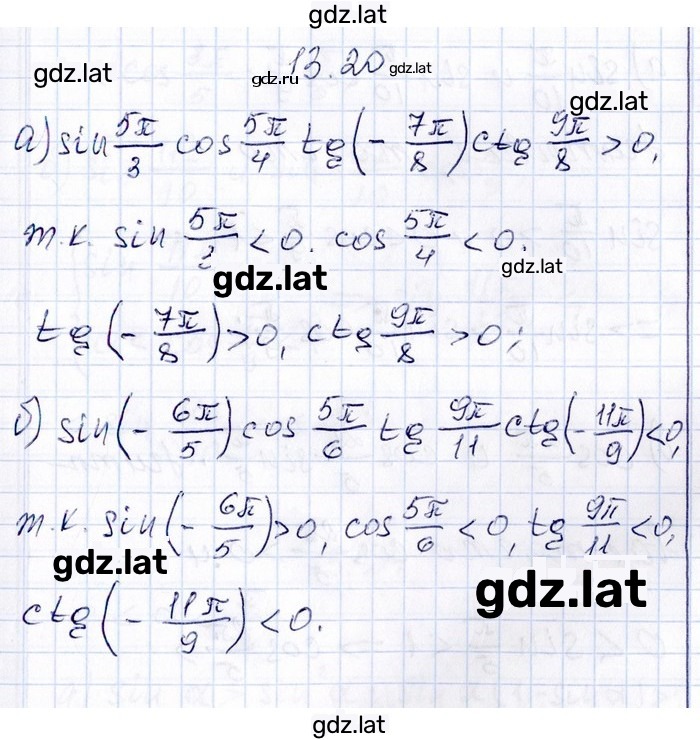 gdz.lat
13.20
gdz.lat gdz.ru gdz.lat
gdz.lat
а) sin 5π/3 cos 5π/4 tg (- 7π/8) ctg 9π/8 > 0,
т.к. sin 5π/3 < 0. cos 5π/4 < 0.
gdz.lat gdz.lat
tg (- 7π/8) > 0, ctg 9π/8 > 0;
б) sin (- 6π/5) cos 5π/6 tg 9π/11 ctg (- 11π/9) < 0,
т.к. sin (- 6π/5) > 0, cos 5π/6 < 0, tg 9π/11 < 0,
gdz.lat gdz.lat
ctg (- 11π/9) < 0.
gdz.lat